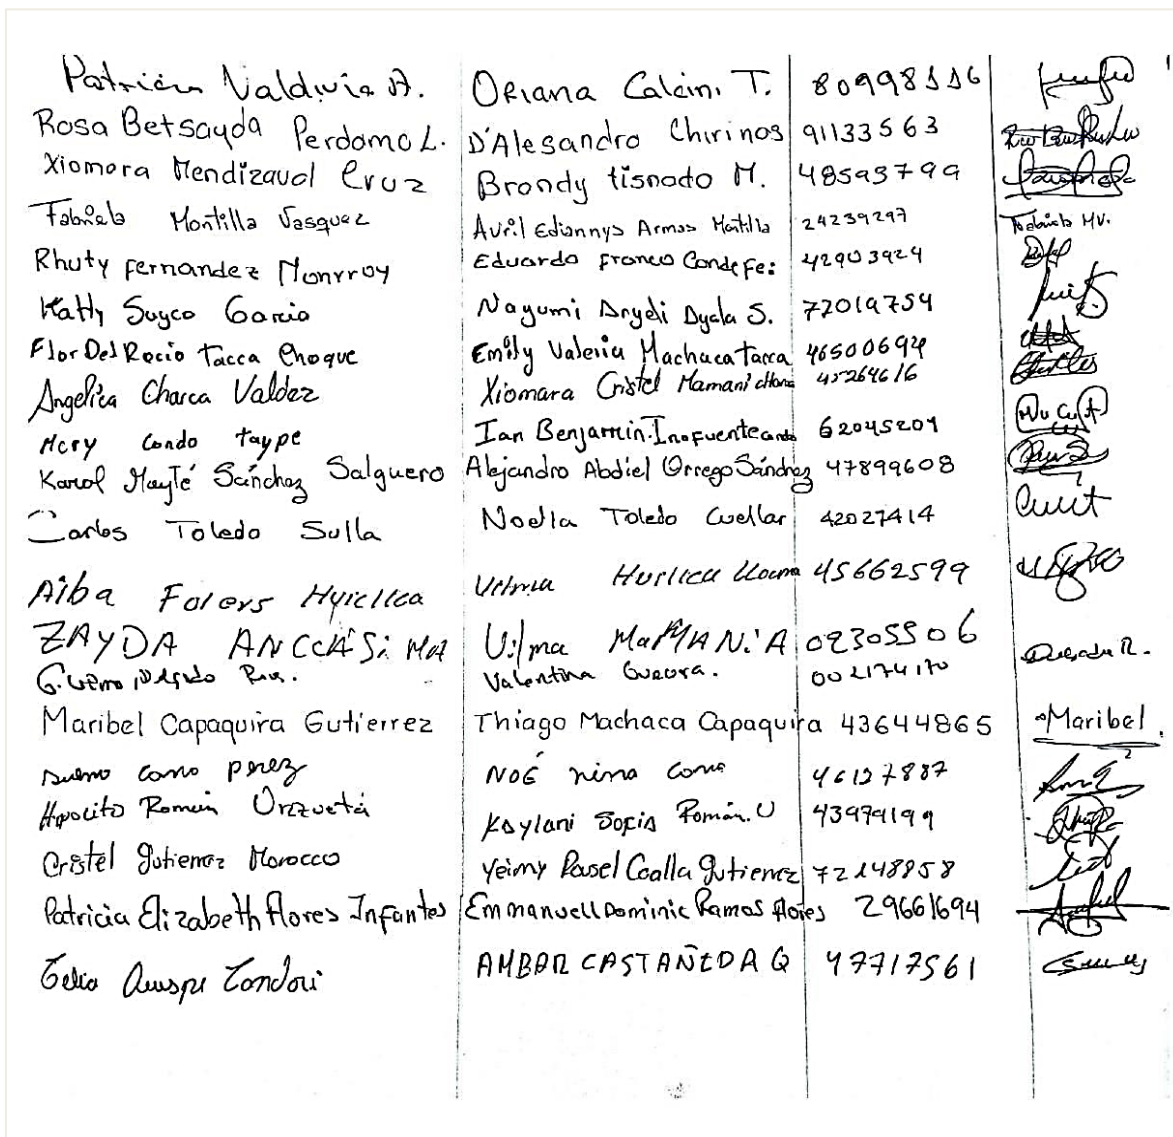 Patricia Valdivia A. Oriana Calcin. T. 80998116
Rosa Betsayda Perdomo L. D'Alesandro Chirinos 91133563
Xiomara Mendizaval Cruz Brandy tisnado M. 48593799
Fabiola Montilla Vasquez Avril Ediannys Armas Montilla 24239297 Fabiola MV.
Rhuty fernandez Monrroy Eduardo Franco Conde fe: 42903924
Katty Suyco Garcia Nayumi Anyeli Ayala S. 77019754
Flor Del Rocio Tacca Choque Emily Valeria Machaca Tacca 46500694
Angelica Charca Valdez Xiomara Cristel Mamani 45264616
Mery Condo taype Ian Benjamin. Inofuente 62045209
Karol Mayté Sánchez Salguero Alejandro Abdiel Orrego Sánchez 47899608
Carlos Toledo Sulla Noelia Toledo Cuellar 42027414
45662599
ZAYDA Vilma MaMANiA 02305506
Valentina Guevara.
Maribel Capaquira Gutierrez Thiago Machaca Capaquira 43644865 Maribel
perez NOÉ nina 46127887
Hipolito Román Kaylani Sofia Román. U 43979199
Cristel gutierrez Morocco Yeimy Ccalla gutierrez 72148858
Patricia Elizabeth flores Infantes Emmanuell Dominic Ramos flores 29661694
Celia Quispe Condori AMBAR CASTAÑEDA Q 47717561